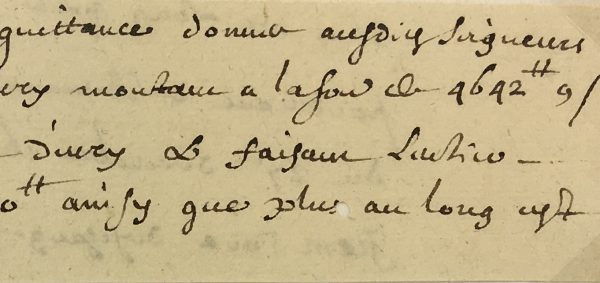 quittance donnee ausditz seigneurs
montant a la so͞e de 4642tt 9s
divry & faisant
0tt ainsy que plus au long est